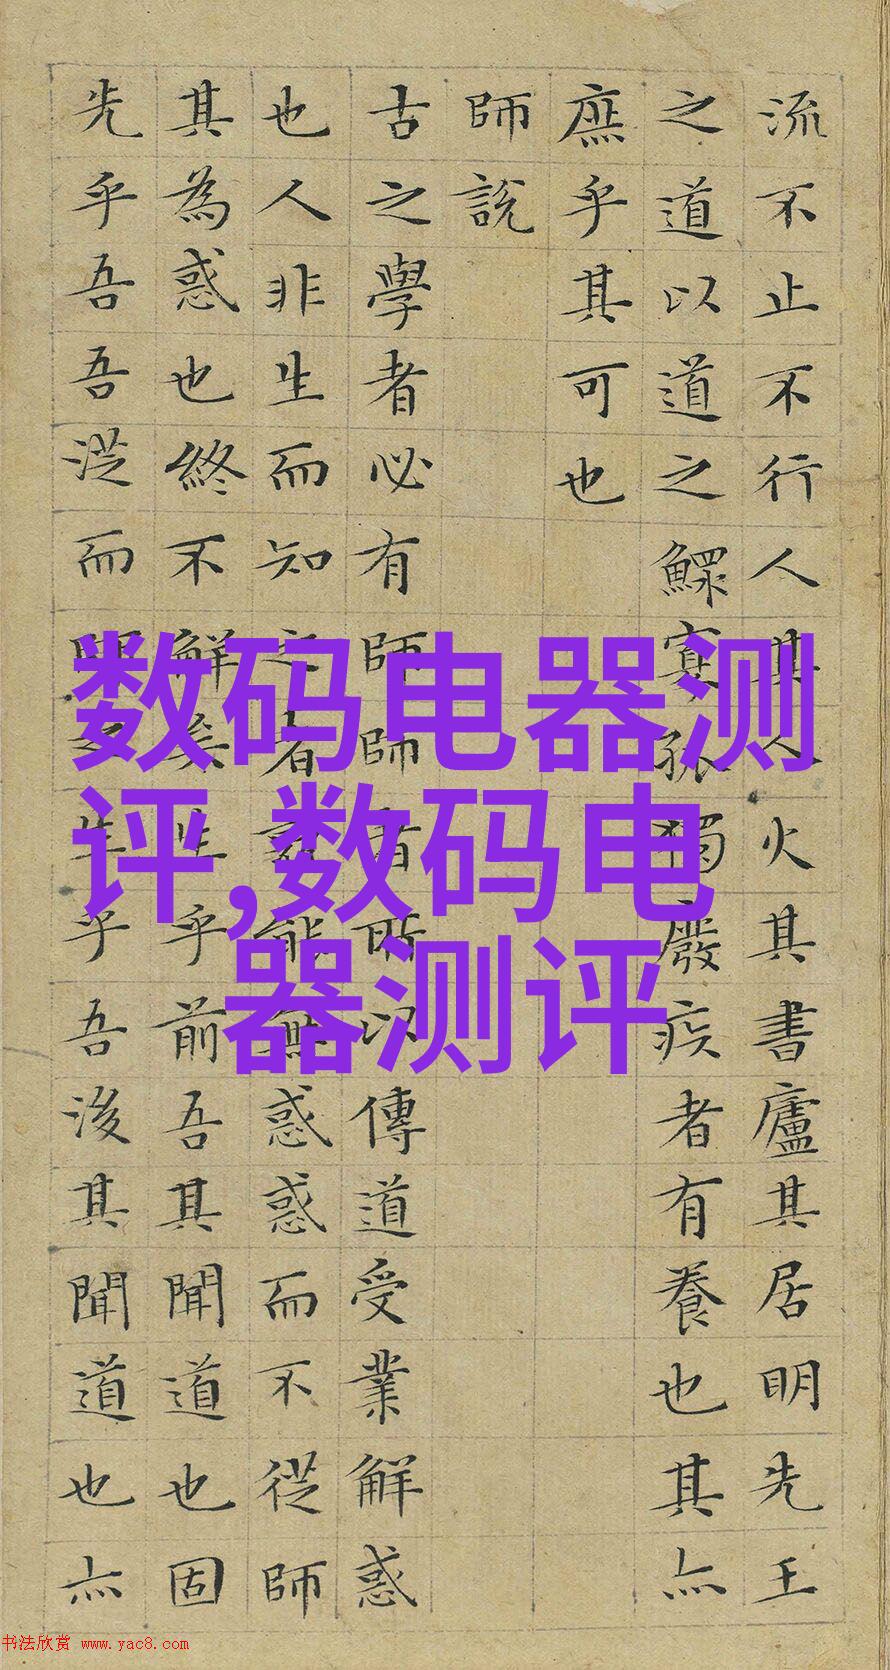 流不止不行人其人火其書廬其居明先王
之道以道之鰥寡孤獨廢疾者有養也其亦
庶乎其可也
師說
古之學者必有師師者所以傳道受業解惑
也人非生而知之者孰能無惑惑而不從師
其為惑也終不解矣生乎前吾其聞道也固
先乎吾吾從而師之生乎吾後其聞道也亦
数码电器测
评,数码电
器测评
书法欣赏 www.yac8.com